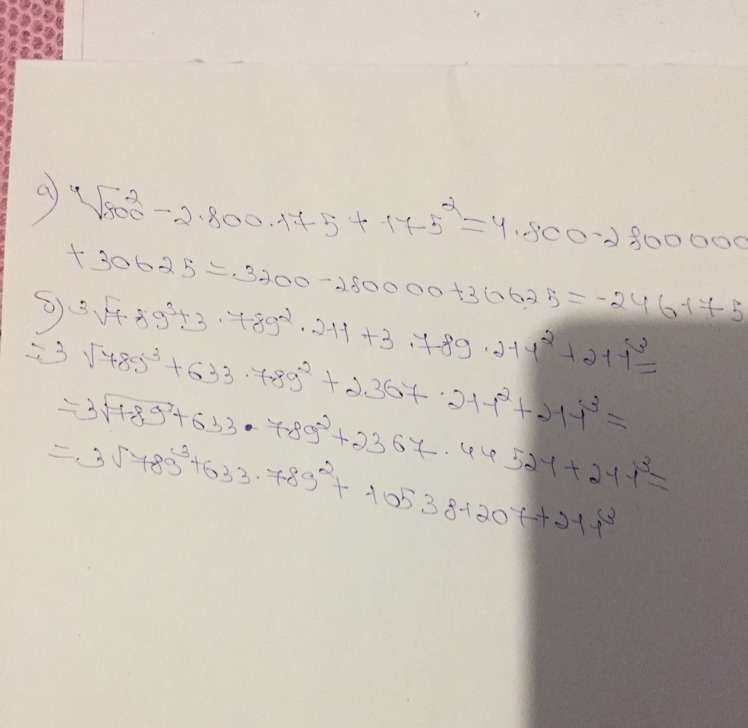 а) ⁴√800² - 2.800.175 + 175² = 4.800 - 2800000
+ 30625 = 3200 - 280000 + 30625 = - 246175
б) ³√789³ + 3 . 789² . 211 + 3 . 789 . 211² + 211³ =
= 3 √789³ + 633 . 789² + 2367 . 211² + 211³ =
= 3√789³ + 633 . 789² + 2367 . 44521 + 211³ =
= 3√789³ + 633 . 789² + 105381207 + 211³